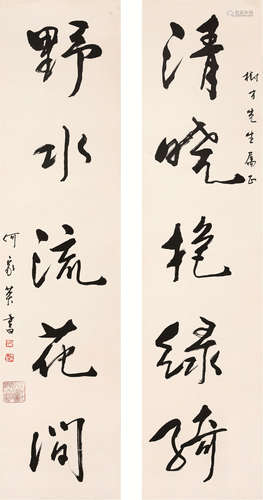 树先生属正
清晓抱绿绮
野水流花涧
何家英书